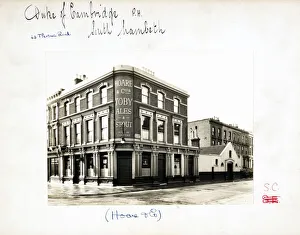 Duke of Cambridge P.H.
Lambeth
HOARE
& Co's
TOBY
ALES
&
STOUT
S.C.
(Hoare & Co)